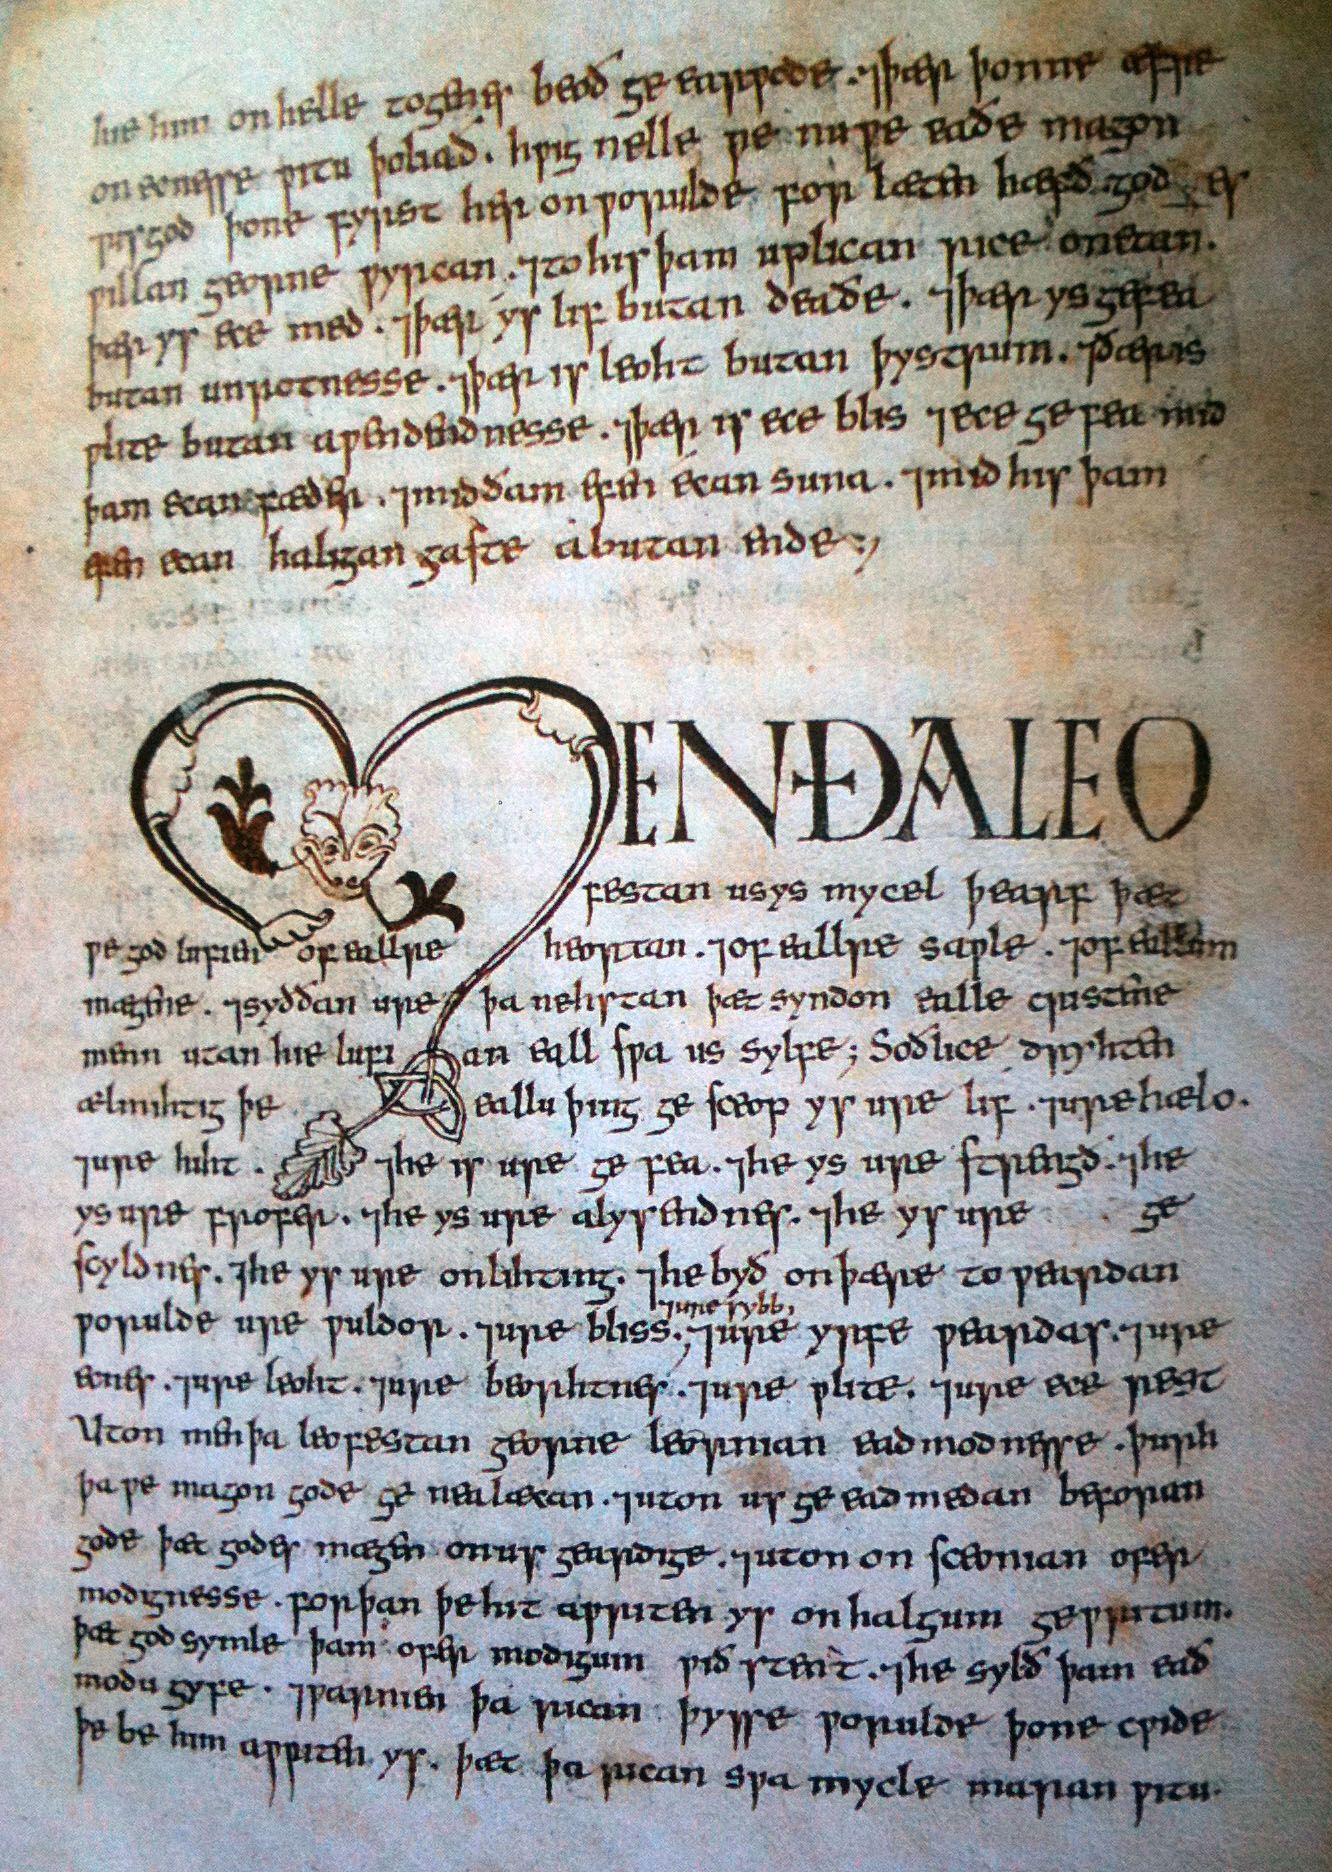 hie him on helle togenes beoð gearƿode. ⁊þær þonne æfre
on ecnesse ƿitu þoliað. hƿig nelle ƿe nu ƿe eaðe magon
god þone fyrst her on ƿorulde forlæten hæfð god
ƿillan georne ƿyrcan. ⁊to his þam uplican rice onetan.
þær ys ece med. ⁊þær ys lif butan deaðe. ⁊þær ys gefea
butan unrotnesse. ⁊þær is leoht butan þystrum. ⁊þær is
ƿlite butan aƿendendnesse. ⁊þær is ece blis ⁊ece gefea mid
þam ecan fæder. ⁊mid ðam efen ecan suna. ⁊mid his þam
efen ecan haligan gaste á butan ende:,
MEN ÐA LEO
festan us ys mycel þearf þæt
ƿe god lufien of ealre heortan. ⁊of ealre saƿle. ⁊of eallum
mægene. ⁊syððan ure þa nehstan þæt syndon ealle cristene
menn utan hie lufian eall sƿa us sylfe; Soðlice dryhten
ælmihtig þe eallu þing gesceop ys ure lif. ⁊ure hælo.
⁊ure hiht. ⁊he is ure gefea. ⁊he ys ure strengð. ⁊he
ys ure frofer. ⁊he ys ure alysendnes. ⁊he ys ure ge
scyldnes. ⁊he ys ure onlihting. ⁊he byð on þære toƿeardan
⁊ure sybb,
ƿorulde ure ƿuldor. ⁊ure bliss; ⁊ure yrfe ƿeardas. ⁊ure
ecnes. ⁊ure leoht. ⁊ure beorhtnes. ⁊ure ƿlite. ⁊ure ece rest
Uton men þa leofestan georne leornian eadmodnesse. þurh
þa ƿe magon gode genealæcan. ⁊uton us geeadmedan beforan
gode þæt godes mægen on us geardige. ⁊uton onscunian ofer
modignesse. forþan þe hit aƿriten ys on halgum geƿritum.
þæt god symle þam ofer modigum ƿið stent. ⁊he sylð þam ead
modu gyfe. ⁊ƿarnien þa rican þysse ƿorulde þone cƿide
þe be him aƿriten ys. þæt þa rican sƿa mycle maran ƿitu.